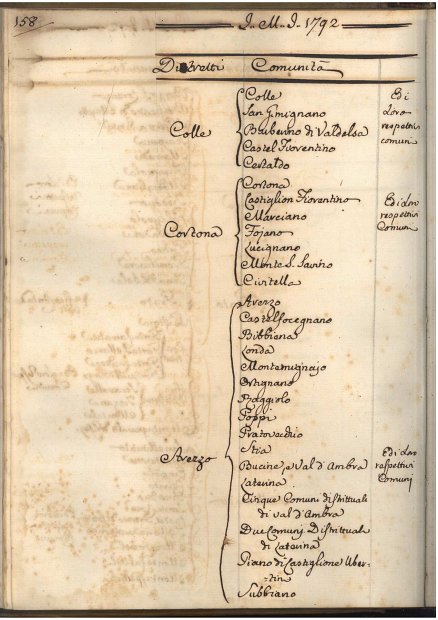 158.
J. M. J. 1792
Distretti Comunità
Colle
Colle
San Gimignano
Barberino di Valdelsa
Castel Fiorentino
Certaldo
Ed i
Loro
respettivi
comuni
Cortona
Cortona
Castiglion Fiorentino
Marciano
Fojano
Lucignano
Monte S. Savino
Civitella
Ed i Loro
respettivi
Comuni
Arezzo
Arezzo
Castelfocognano
Bibbiena
Londa
Montemignajo
Ortignano
Raggiolo
Poppi
Pratovecchio
Stia
Bucine, e Val d'Ambra
Laterina
Cinque Comuni distrittuali
di val d'Ambra
Due Comuni Distrittuali
di Laterina
Piano di Castiglione Uber-
tini
Subbiano
Ed i Loro
respettivi
Comuni